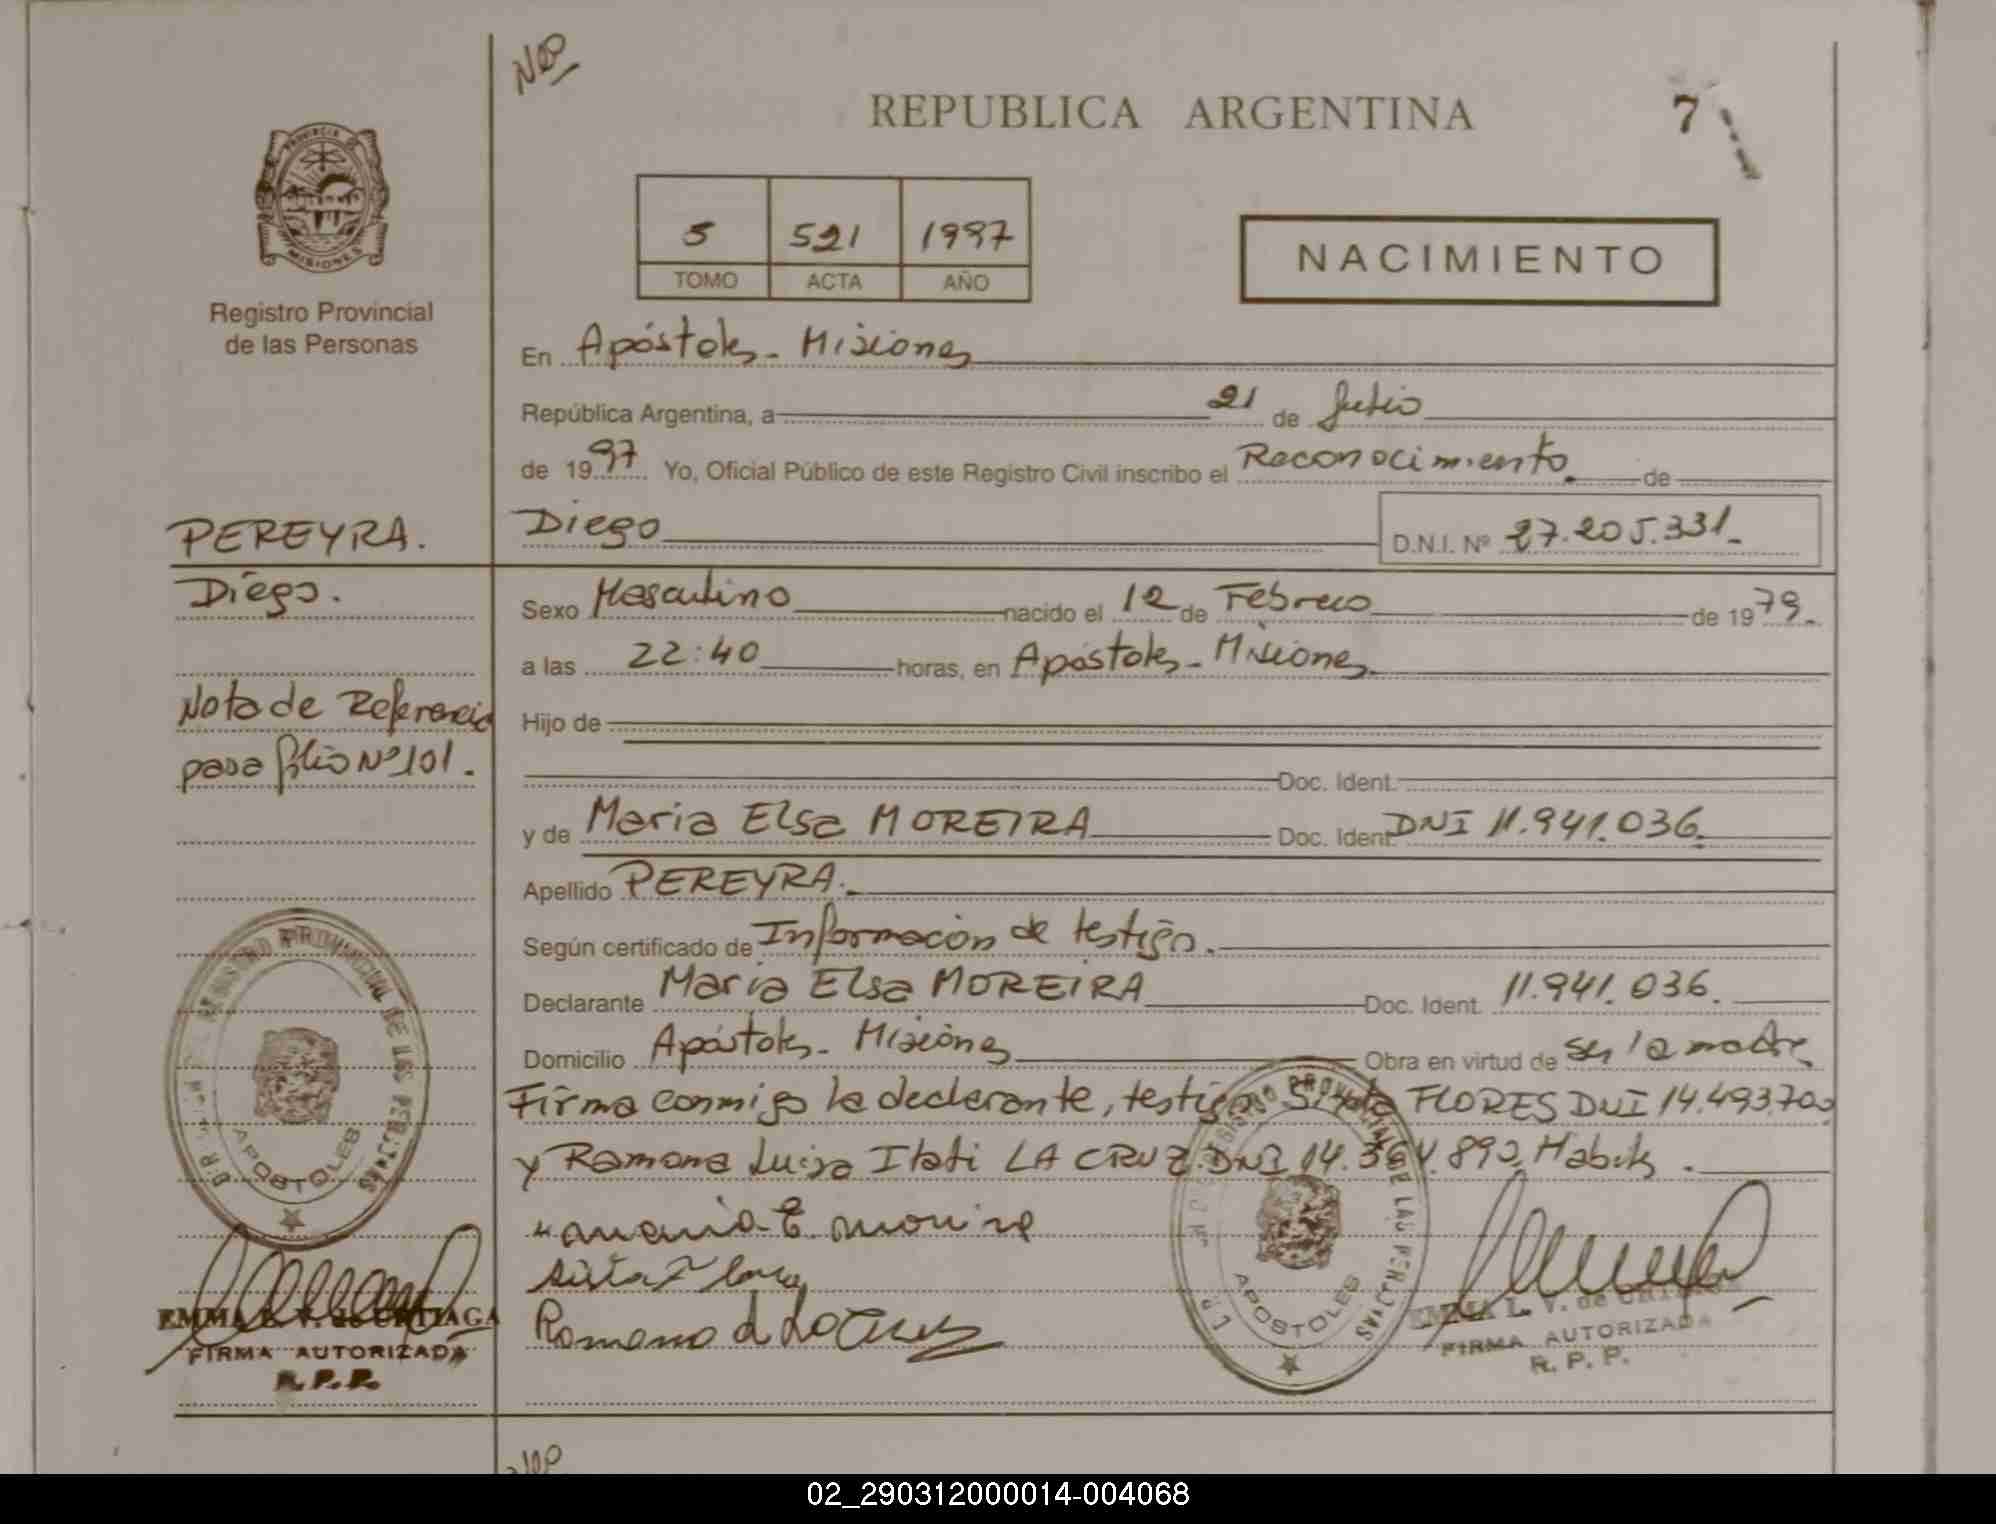 Nop
REPUBLICA ARGENTINA
7
PROVINCIA DE
MISIONES
Registro Provincial
de las Personas
5 521 1997
TOMO ACTA AÑO
NACIMIENTO
En Apóstoles - Misiones
República Argentina, a 21 de Julio
de 1997 Yo, Oficial Público de este Registro Civil inscribo el Reconocimiento de
PEREYRA.
Diego D.N.I. Nº 27.205.331.-
Diego.
Sexo Masculino nacido el 12 de Febrero de 1979.
a las 22:40 horas, en Apóstoles - Misiones
Nota de Referencia
pasa folio Nº 101.
Hijo de
Doc. Ident.
y de Maria Elsa MOREIRA Doc. Ident. DNI 11.941.036.
Apellido PEREYRA.
Según certificado de Información de testigo.
Declarante Maria Elsa MOREIRA Doc. Ident. 11.941.036.
Domicilio Apóstoles - Misiones Obra en virtud de ser la madre
Firma conmigo la declarante, testigos Sixta FLORES DNI 14.493.700
y Ramona Luisa Itati LA CRUZ DNI 14.364.892 Habiles.
maria E. moreira
Sixta Flores
Ramona L La Cruz
REGISTRO PROVINCIAL DE LAS PERSONAS
APOSTOLES
EMMA L. V. de URTIAGA
FIRMA AUTORIZADA
R. P. P.
REGISTRO PROVINCIAL DE LAS PERSONAS
APOSTOLES
EMMA L. V. de URTIAGA
FIRMA AUTORIZADA
R. P. P.
02_290312000014-004068